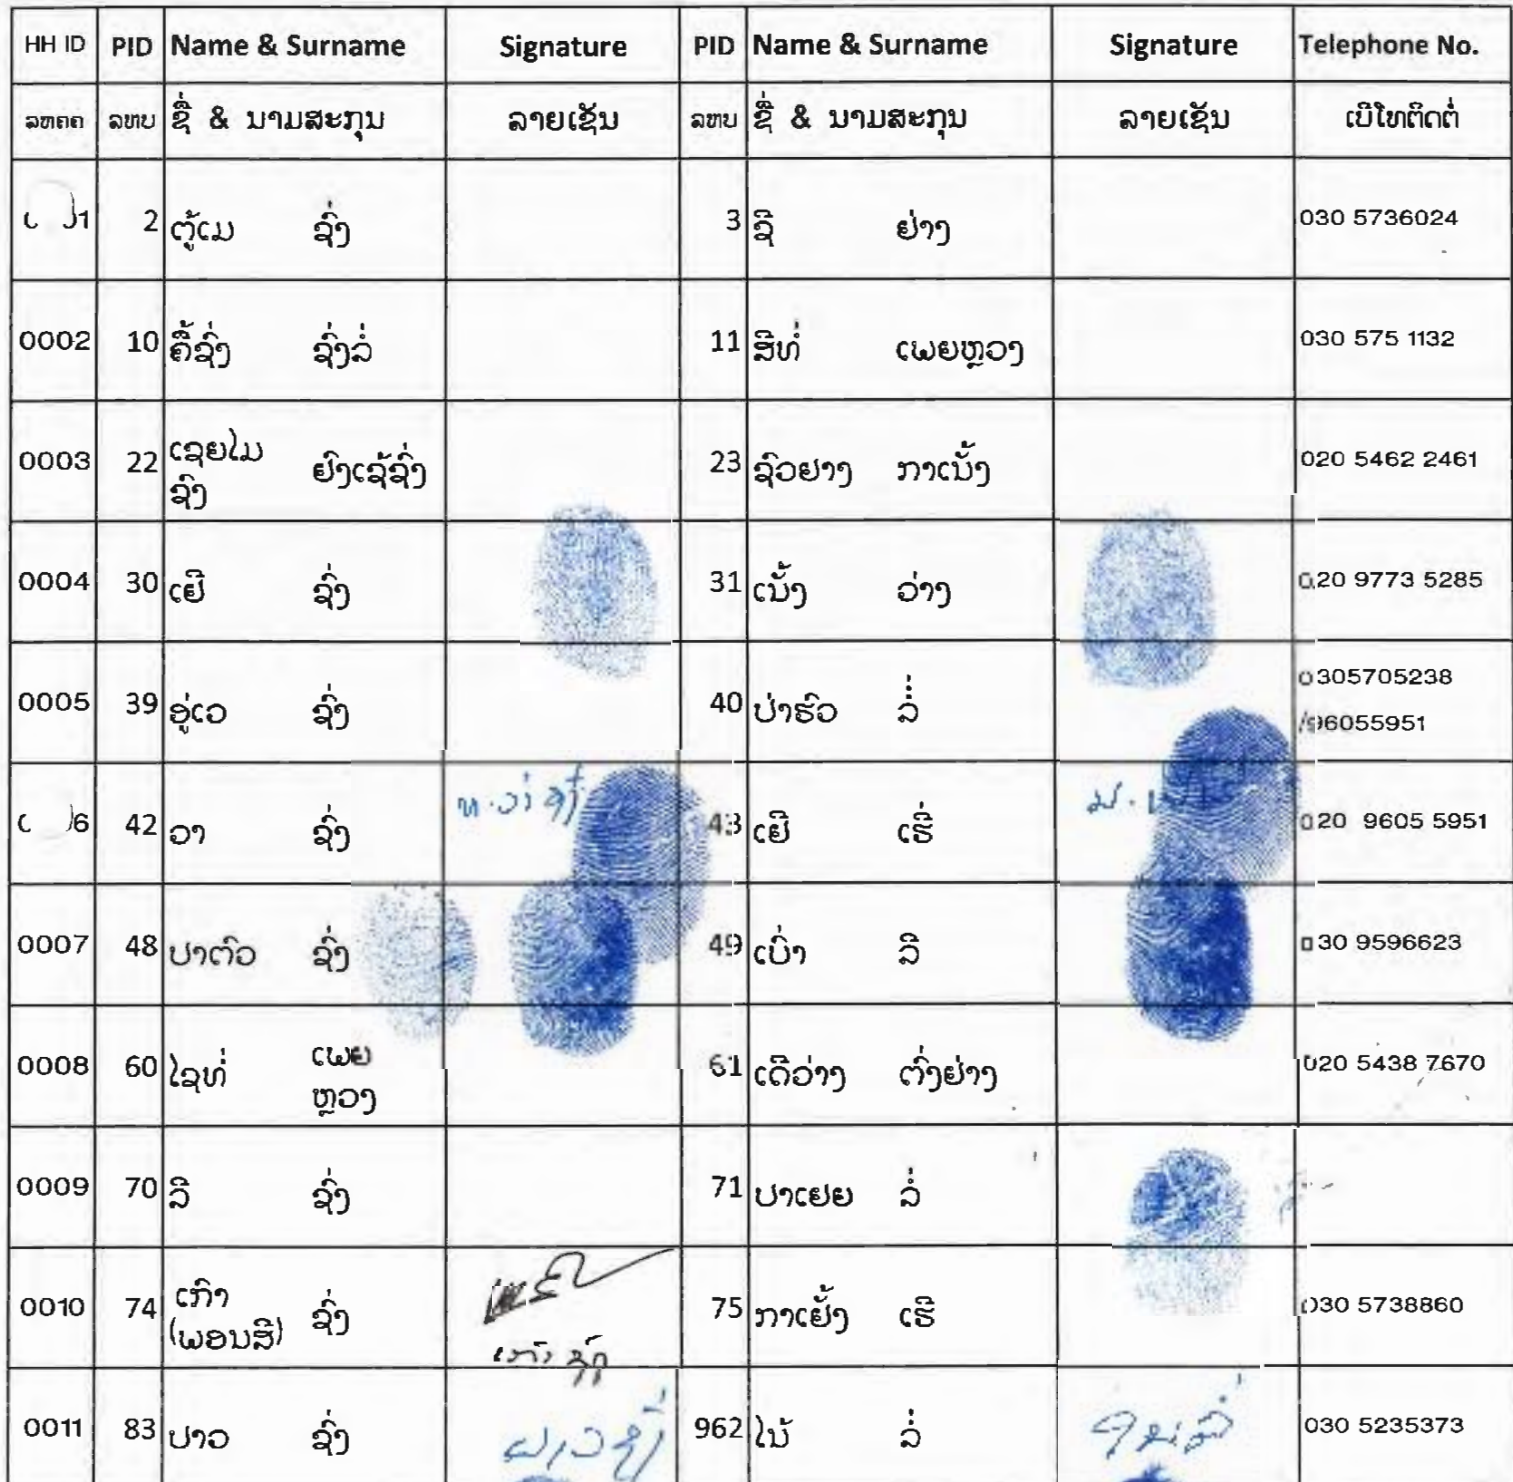 HH ID PID Name & Surname Signature PID Name & Surname Signature Telephone No.
ລຫຄຄ ລຫບ ຊື່ & ນາມສະກຸນ ລາຍເຊັນ ລຫບ ຊື່ & ນາມສະກຸນ ລາຍເຊັນ ເບີໂທຕິດຕໍ່
2 ຕູ້ເມ ຊົ່ງ 3 ຊີ ຢ່າງ 030 5736024
0002 10 ຄື້ຊົ່ງ ຊົ່ງລໍ່ 11 ສີທໍ່ ເພຍຫຼວງ 030 575 1132
0003 22 ເຊຍໄມ ຊົງ ຢົງເຊ້ຊົ່ງ 23 ຊົວຢາງ ກາເນັ້ງ 020 5462 2461
0004 30 ເຢີ ຊົ່ງ 31 ເນັ້ງ ວ່າງ 020 9773 5285
0005 39 ອູ່ເວ ຊົ່ງ 40 ປ່າຮົວ 0305705238
/96055951
42 ວາ ຊົ່ງ 43 ເຢີ ເຮີ່ 020 9605 5951
0007 48 ປາຕົວ ຊົ່ງ 49 ເບົ່າ ລີ 030 9596623
0008 60 ໄຊທໍ່ ເພຍ ຫຼວງ 61 ເດີວ່າງ ຕົ່ງຢ່າງ 020 5438 7670
0009 70 ລີ ຊົ່ງ 71 ປາເຢຍ ລໍ່
0010 74 ເກົາ (ພອນສີ) ຊົ່ງ 75 ກາເຢັ້ງ ເຮີ 030 5738860
ເກົາ ຊົ່ງ
0011 83 ປາວ ຊົ່ງ 962 ໄນ້ ລໍ່ 030 5235373